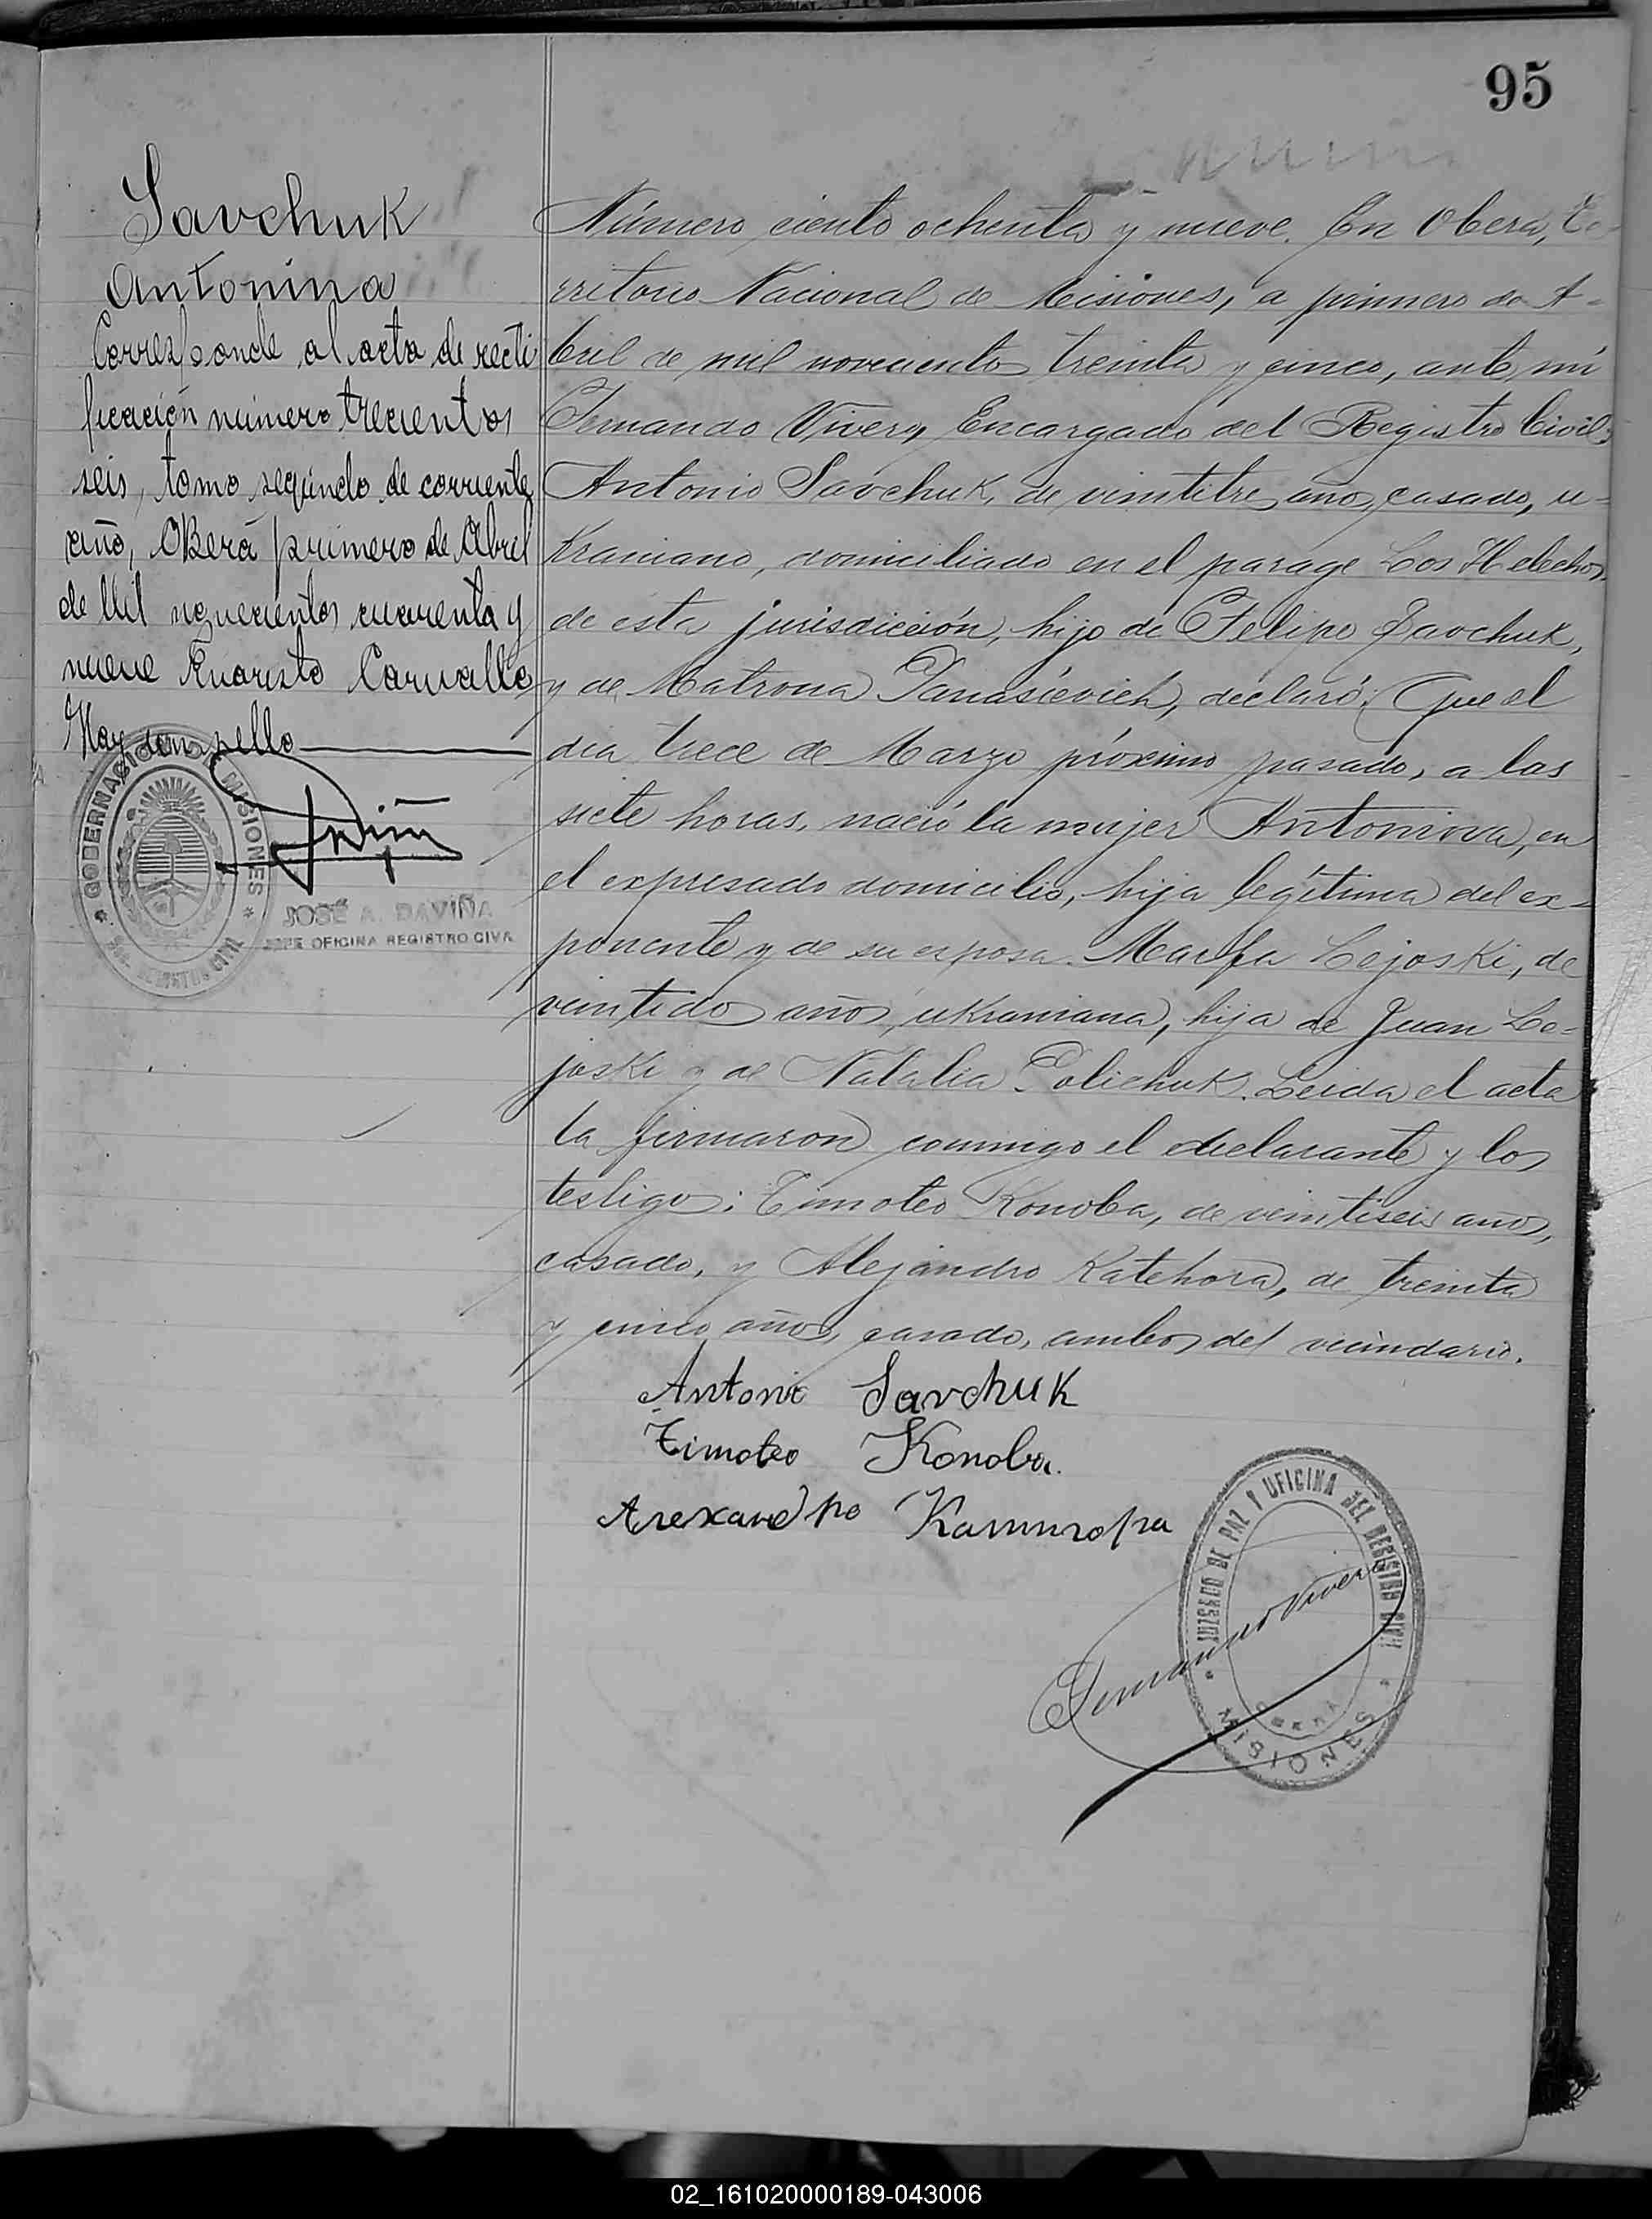 95
Savchuk
Antonina
Corresponde al acta de recti
ficación número trecientos
seis, tomo segundo de corriente
año, Oberá primero de Abril
de Mil novecientos cuarenta y
nueve Evaristo Carvallo
Hay un sello
GOBERNACION DE MISIONES
JOSÉ A. DAVIÑA
JEFE OFICINA REGISTRO CIVIL
Número ciento ochenta y nueve. En Obera, Te-
rritorio Nacional de Misiones, a primero de A-
bril de mil novecientos treinta y cinco, ante mi
Fernando Vivero, Encargado del Registro Civil,
Antonio Savchuk, de veintitres años, casado, u-
kraniano, domiciliado en el parage Los Helechos,
de esta jurisdicción, hijo de Felipe Savchuk,
y de Matrona Panasievich, declaró: Que el
dia trece de Marzo próximo pasado, a las
siete horas, nació la mujer Antonina, en
el expresado domicilio, hija legítima del ex-
ponente y de su esposa Marfa Lejoski, de
veintidos años, ukraniana, hija de Juan Le-
joski y de Natalia Polichuk. Leida el acta
la firmaron conmigo el declarante y los
testigos: Timoteo Konoba, de veintiseis años,
casado, y Alejandro Katehora, de treinta
y cinco años, casado, ambos del vecindario.
Antonio Savchuk
Timoteo Konoba.
Алехандро
JUZGADO DE PAZ Y OFICINA DEL REGISTRO CIVIL
OBERA
MISIONES
Fernando Vivero
02_161020000189-043006